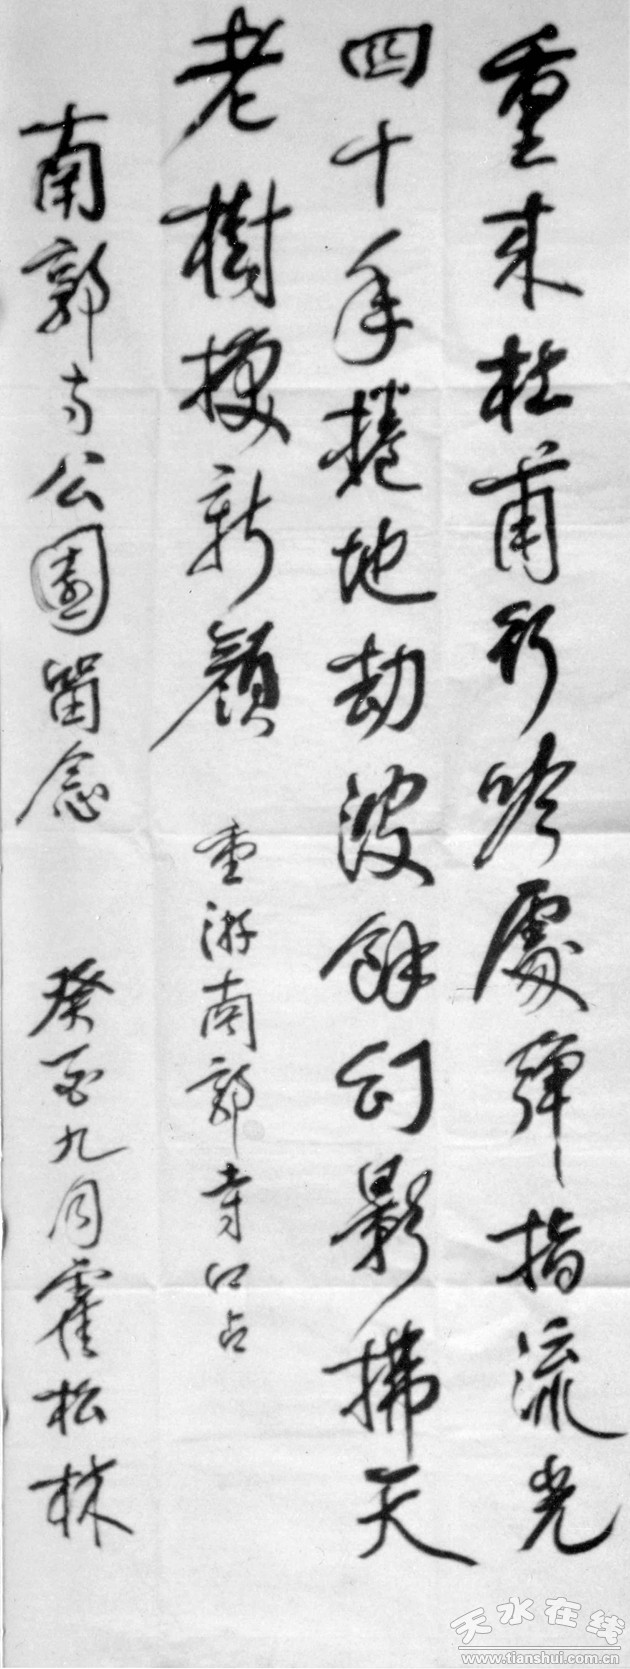 重来杜甫行吟處彈指流光
四十年捲地劫波餘幻影拂天
老樹換新顏
重游南郭寺口占
南郭寺公園留念
癸酉九月霍松林
天水在线
www.tianshui.com.cn